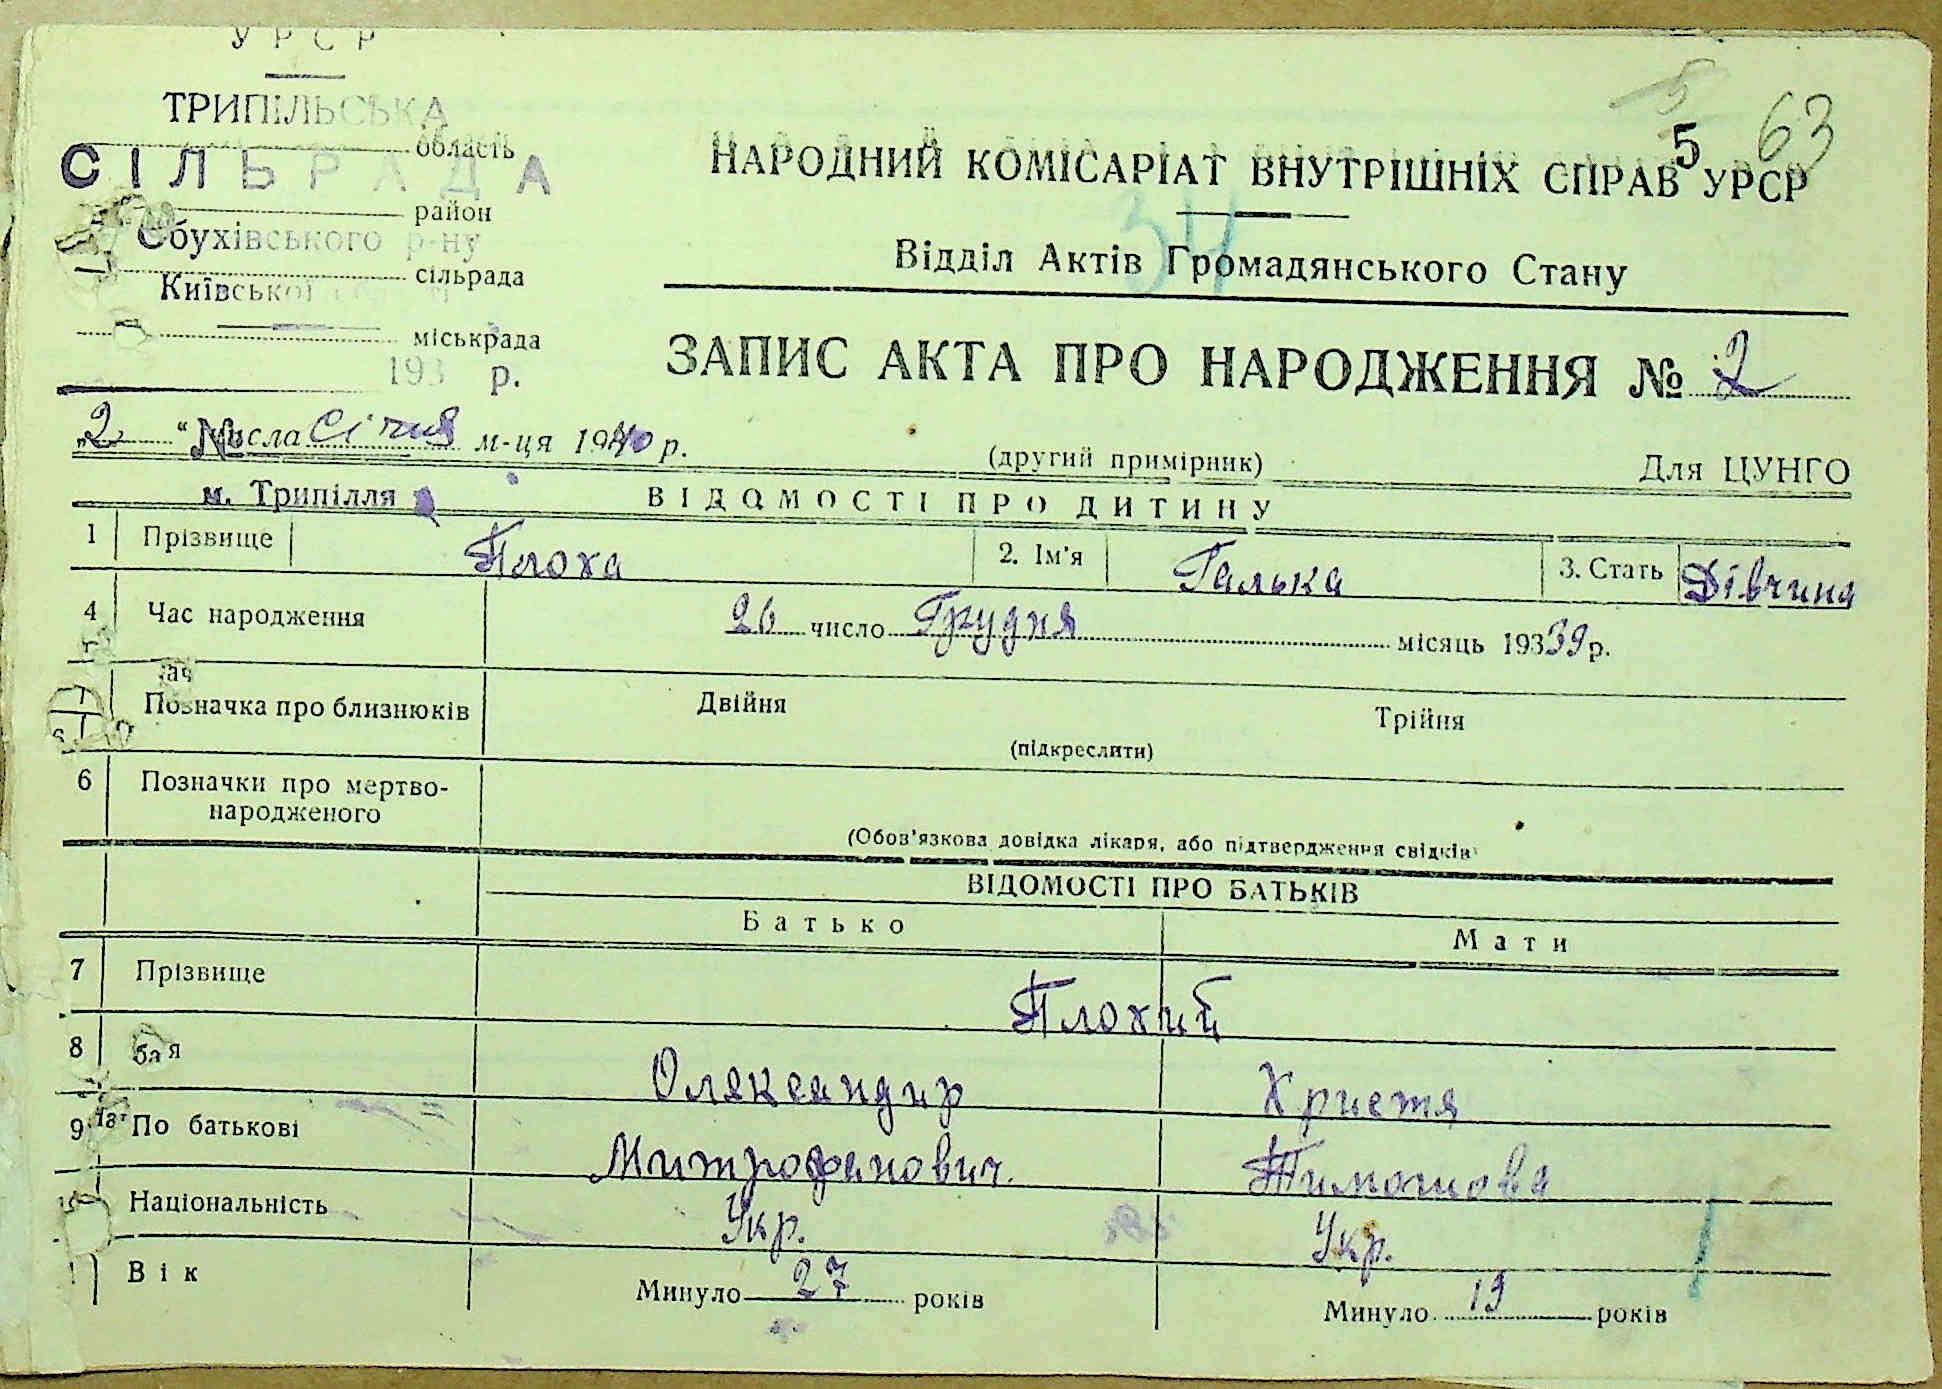 УРСР
ТРИПІЛЬСЬКА
область
СІЛЬРАДА
район
Обухівського р-ну
сільрада
Київської області
міськрада
193 р.
5
63
5
НАРОДНИЙ КОМІСАРІАТ ВНУТРІШНІХ СПРАВ УРСР
34
Відділ Актів Громадянського Стану
ЗАПИС АКТА ПРО НАРОДЖЕННЯ № 2
„2“ числа Січня м-ця 1940 р.
№
(другий примірник) Для ЦУНГО
м. Трипілля
ВІДОМОСТІ ПРО ДИТИНУ
1 Прізвище Плоха 2. Ім'я Галька 3. Стать Дівчина
4 Час народження 26 число Грудня місяць 19339 р.
Позначка про близнюків Двійня Трійня
(підкреслити)
6 Позначки про мертво-
народженого
(Обов'язкова довідка лікаря, або підтвердження свідків)
ВІДОМОСТІ ПРО БАТЬКІВ
Батько Мати
7 Прізвище Плохий
8 Олександир Христя
9 По батькові Митрофанович. Тимошова
Національність Укр. Укр.
Вік Минуло 27 років Минуло 19 років